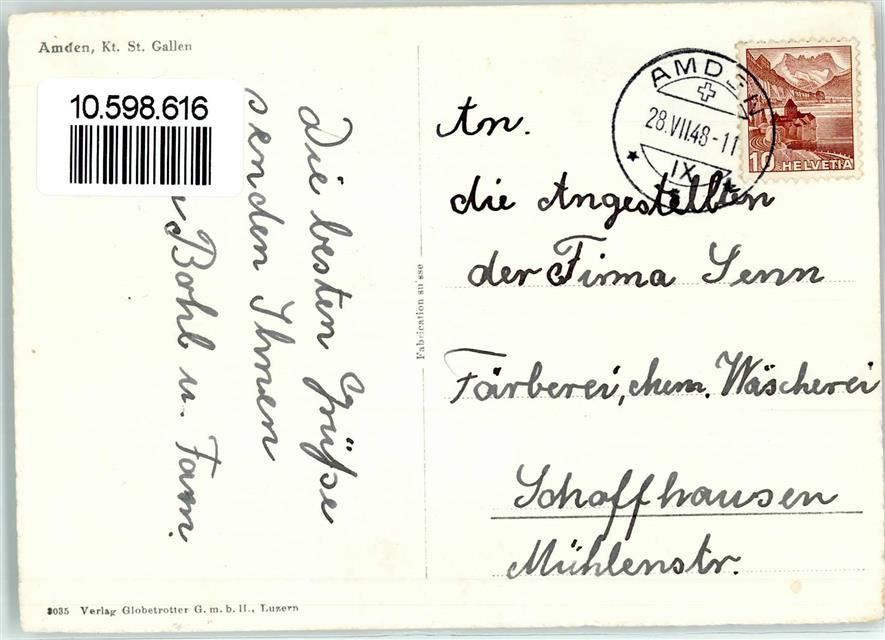 Amden, Kt. St. Gallen
10.598.616
Die besten Grüße
senden Ihnen
Bohl u. Fam.
Fabrication suisse
AMDEN
28.VII.48-11
IX
10 HELVETIA
An.
die Angestellten
der Firma Senn
Färberei, chem. Wäscherei
Schaffhausen
Mühlenstr.
3035 Verlag Globetrotter G. m. b. H., Luzern